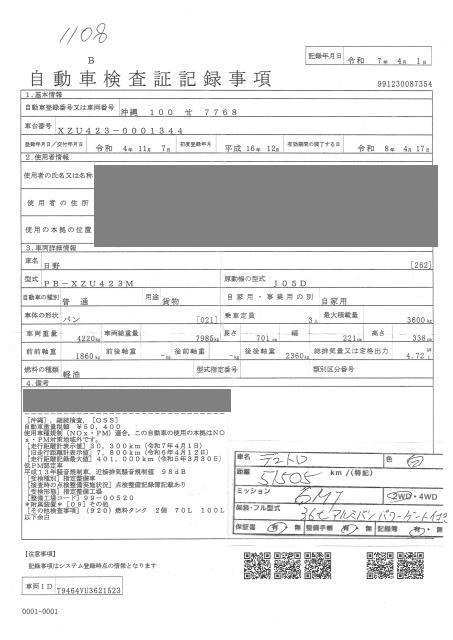 1108
B
自動車検査証記録事項
記録年月日 令和 7年 4月 1日
991230087354
1.基本情報
自動車登録番号又は車両番号 沖縄 100 せ 7768
車台番号 XZU423-0001344
登録年月日/交付年月日 令和 4年11月 7日 初度登録年月 平成16年12月 有効期間の満了する日 令和 8年 4月17日
2.使用者情報
使用者の氏名又は名称
使用者の住所
使用の本拠の位置
3.車両詳細情報
車名 日野 [262]
型式 PB-XZU423M 原動機の型式 J05D
自動車の種別 普通 用途 貨物 自家用・事業用の別 自家用
車体の形状 バン [021] 乗車定員 3人 最大積載量 3600kg
車両重量 4220kg 車両総重量 7985kg 長さ 701cm 幅 221cm 高さ 338cm
前前軸重 1860kg 前後軸重 -kg 後前軸重 -kg 後後軸重 2360kg 総排気量又は定格出力 4.72L
燃料の種類 軽油 型式指定番号 類別区分番号
4.備考
[沖縄],継続検査,[OSS]
自動車重量税額 ¥50,400
使用車種規制(NOx・PM)適合。この自動車の使用の本拠はNO
x・PM対策地域外です。
[走行距離計表示値] 30,300km(令和7年4月1日)
[旧走行距離計表示値] 7,800km(令和6年4月12日)
[走行距離計記録最大値] 401,000km(令和5年3月30日)
低PM認定車
平成13年騒音規制車、近接排気騒音規制値 98dB
[受検種別] 指定整備車
[検査時の点検整備実施状況] 点検整備記録簿記載あり
[受検形態] 指定整備工場
[整備工場コード] 99-00520
*附属装置* [09] その他
[その他検査事項] (920) 燃料タンク 2個 70L 100L
以下余白
車名 デュトロ 色 白
距離 51505 km/(特記)
ミッション 6MT 2WD・4WD
架装・フル型式
アルミバン パワーゲート
保証書 有・無 整備手帳 有・無 記録簿 有・無
[注意事項]
記録事項はシステム登録時点の情報となります
車両ID T9464VU3621523
0001-0001